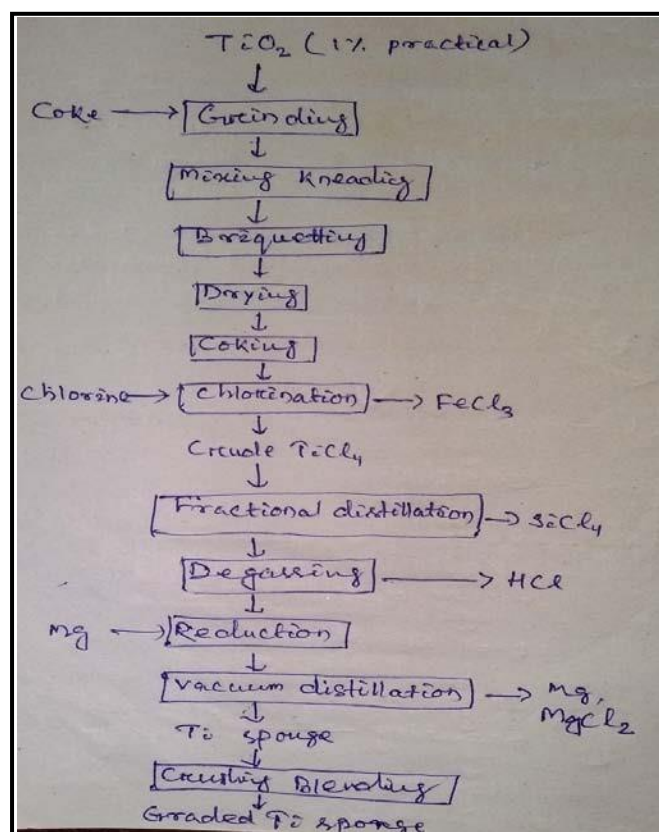 TiO2 (1% practical)
Coke → Grinding
Mixing Kneading
Briquetting
Drying
Coking
Chlorine → Chlorination → FeCl3
Crude TiCl4
Fractional distillation → SiCl4
Degassing → HCl
Mg → Reduction
Vacuum distillation → Mg,
MgCl2
Ti sponge
Crushing Blending
Graded Ti sponge